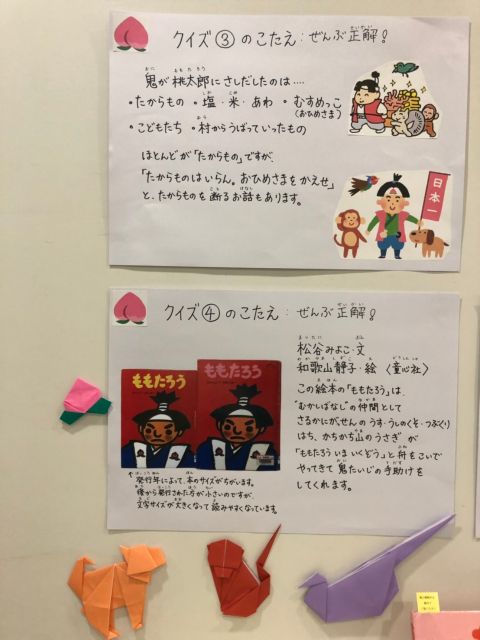 クイズ③のこたえ:ぜんぶ正解!
鬼が桃太郎にさしだしたのは‥‥
・たからもの ・塩・米・あわ ・むすめっこ
(おひめさま)
・こどもたち ・村からうばっていったもの
ほとんどが「たからもの」ですが、
「たからものはいらん。おひめさまをかえせ」
と、たからものを断るお話もあります。
日本一
クイズ④のこたえ:ぜんぶ正解!
松谷みよこ・文
和歌山静子・絵〈童心社〉
この絵本の「ももたろう」は、
"むかしばなし"の仲間として
さるかにがっせんのうす・うしのくそ・つぶくり
はち、かちかち山のうさぎが
"ももたろういまいくどう"と舟をこいで
やってきて鬼たいじの手助けを
してくれます。
ももたろう
ももたろう
発行年によって、本のサイズがちがいます。
後から発行された方が小さいのですが、
文字サイズが大きくなって読みやすくなっています。